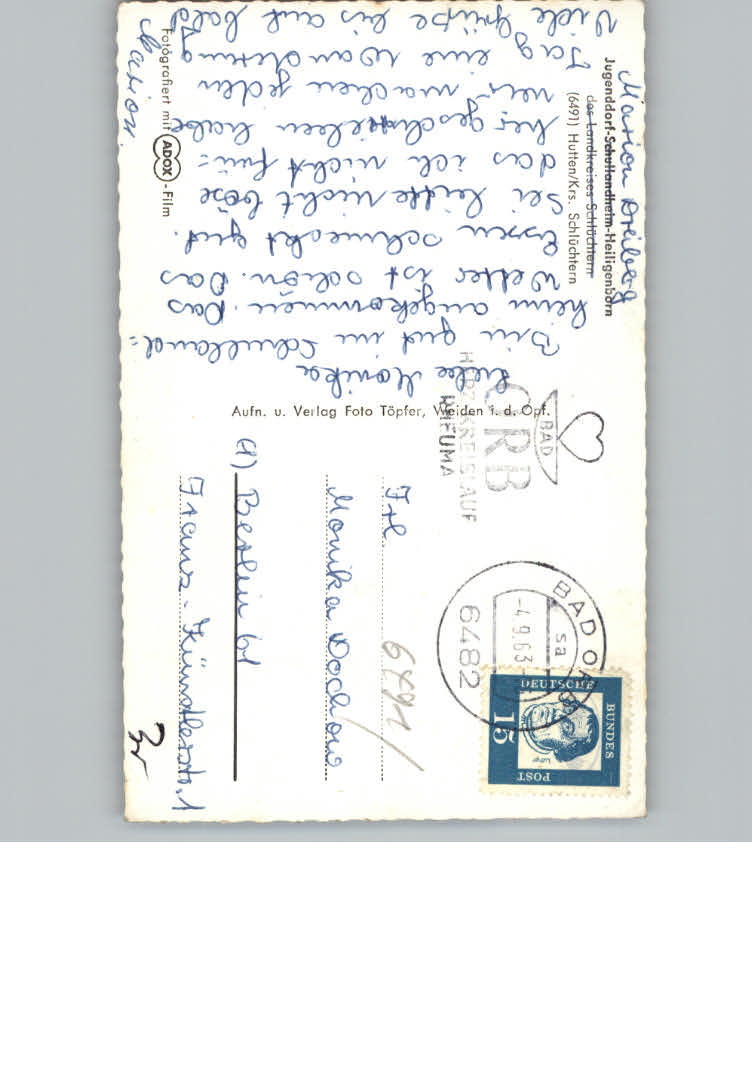 Marion Dreiberg
Jugenddorf-Schullandheim-Heiligenborn
des Landkreises Schlüchtern
(6491) Hutten/Krs. Schlüchtern
Liebe Monika
Bin gut im Schulland=
heim angekommen. Das
Wetter ist schön. Das
Essen schmeckt gut.
Sei bitte nicht böse
das ich nicht frü=
her geschrieben habe
wir machen jeden
Tag eine Wanderung
Viele Grüße bis auf bald
Marion.
Fotografiert mit ADOX-Film
Aufn. u. Verlag Foto Töpfer, Weiden i. d. Opf.
BAD
ORB
HERZ KREISLAUF
RHEUMA
BAD ORB
sa
-4.9.63-
6482
DEUTSCHE
BUNDES
POST
15
Frl.
Monika Dochow
(1) Berlin 61
Franz-Künstlerstr. 1
6491/